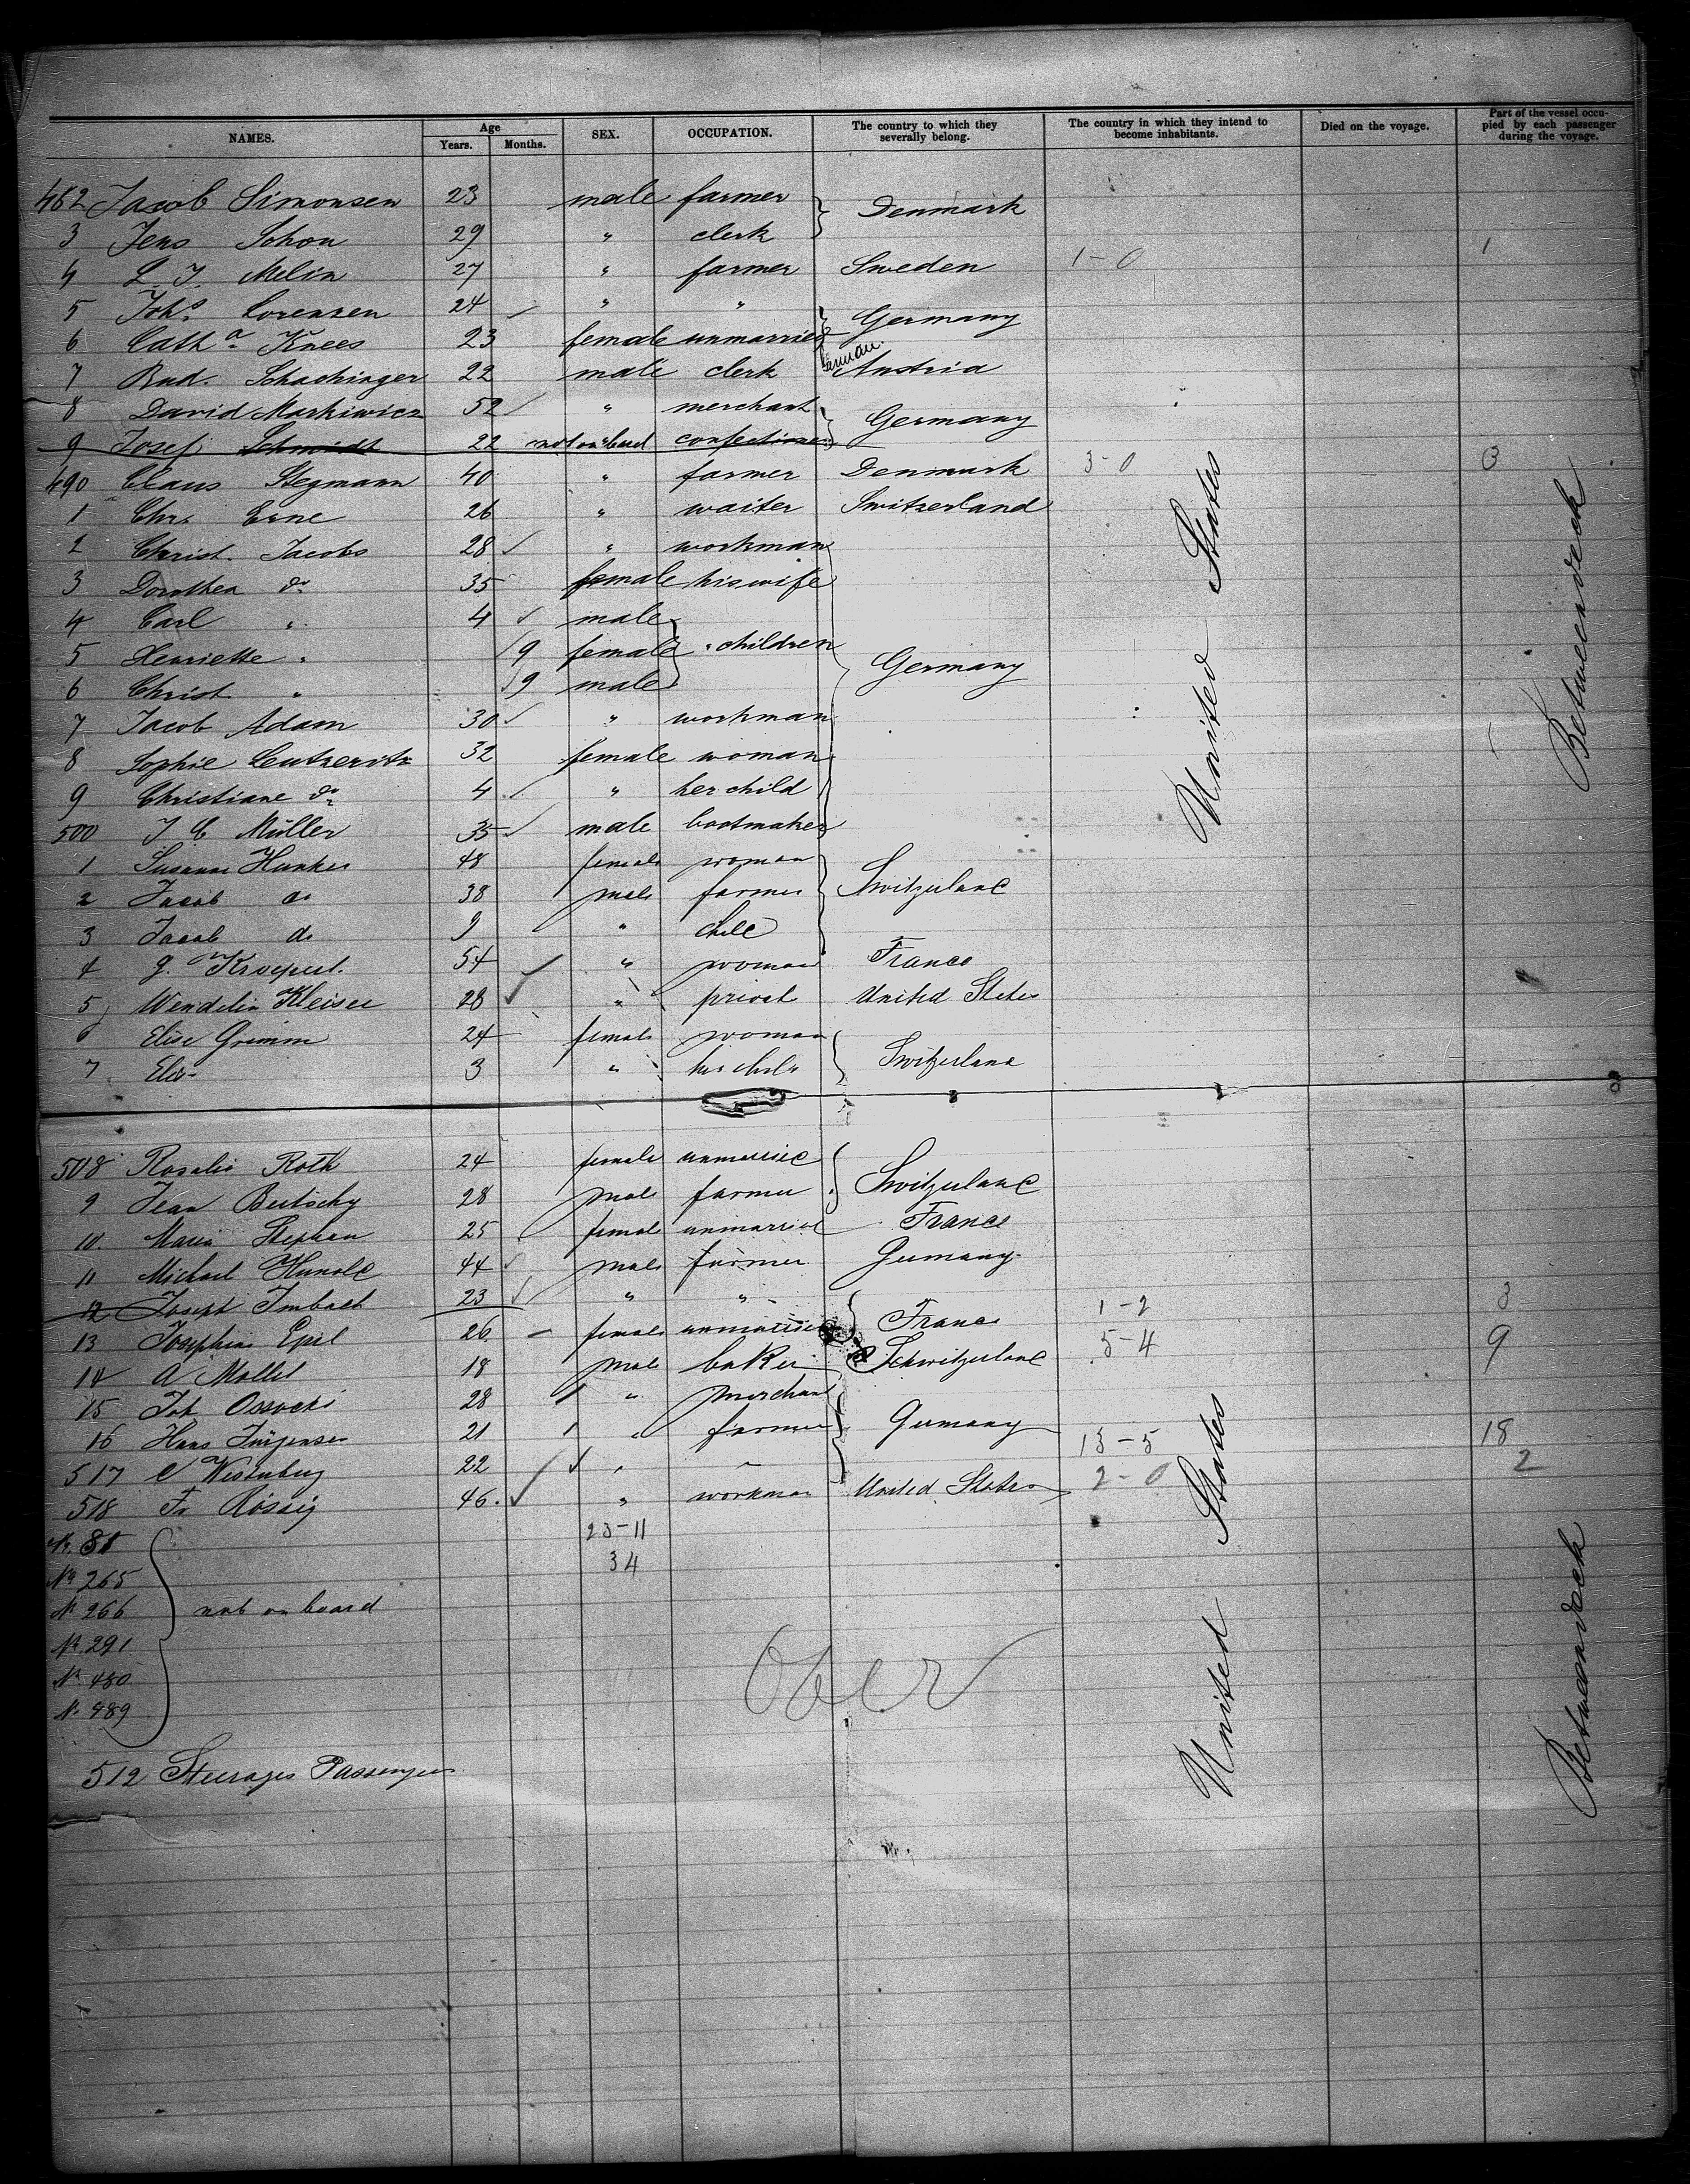 NAMES. Age Years. Months. SEX. OCCUPATION. The country to which they severally belong. The country in which they intend to become inhabitants. Died on the voyage. Part of the vessel occupied by each passenger during the voyage.
482 Jacob Simonsen 23 male farmer Denmark
3 Jens Schou 29 " clerk 1
4 L. J. Melin 27 " farmer Sweden 1-0
5 Johs Lorenzen 24 " " Germany
6 Catha Knees 23 female unmarried
7 Rud. Schachinger 22 male clerk Austria
8 David Markiwicz 52 " merchant Germany
9 Josef Schmidt 22 not on board confectioner
490 Claus Stegmann 40 " farmer Denmark 3-0 3
1 Chr. Erne 26 " waiter Switzerland
2 Christ. Jacobs 28 " workman
3 Dorothea do 35 female his wife
4 Carl " 4 male
5 Henriette " 9 female children Germany
6 Christ " 9 male
7 Jacob Adam 30 " workman
8 Sophie Leutzeritz 32 female woman
9 Christiane do 4 " her child
500 J C Müller 35 male bootmaker
1 Susanna Hunker 48 female woman
2 Jacob do 38 male farmer Switzerland
3 Jacob do 9 " child
4 54 " woman France
5 Wendelin Kleiser 28 " privat United States
6 Elise Grimm 24 female woman
7 Elis 3 " her child Switzerland
508 Rosalie Roth 24 female unmarried
9 Jean Bertschy 28 male farmer Switzerland
10. Maria Stephan 25 female unmarried France
11 Michael Hunold 44 male farmer Germany
12 Joseph Imbach 23 " " 3
13 Josephine Epel 26 female unmarried France 1-2
14 A Mollet 18 male baker Schwitzerland 5-4 9
15 Joh Ossocki 28 " merchant
16 Hans Jürgensen 21 " farmer Germany 13-5 18
517 C Westenberg 22 " 2
518 Fr Rössig 46. " workman United States 2-0
23-11
34
United States
Betweendeck
United States
Betweendeck
No. 81
No 265
No 266 not on board
No 291
No 480
No 489
Over
512 Steerages Passengers